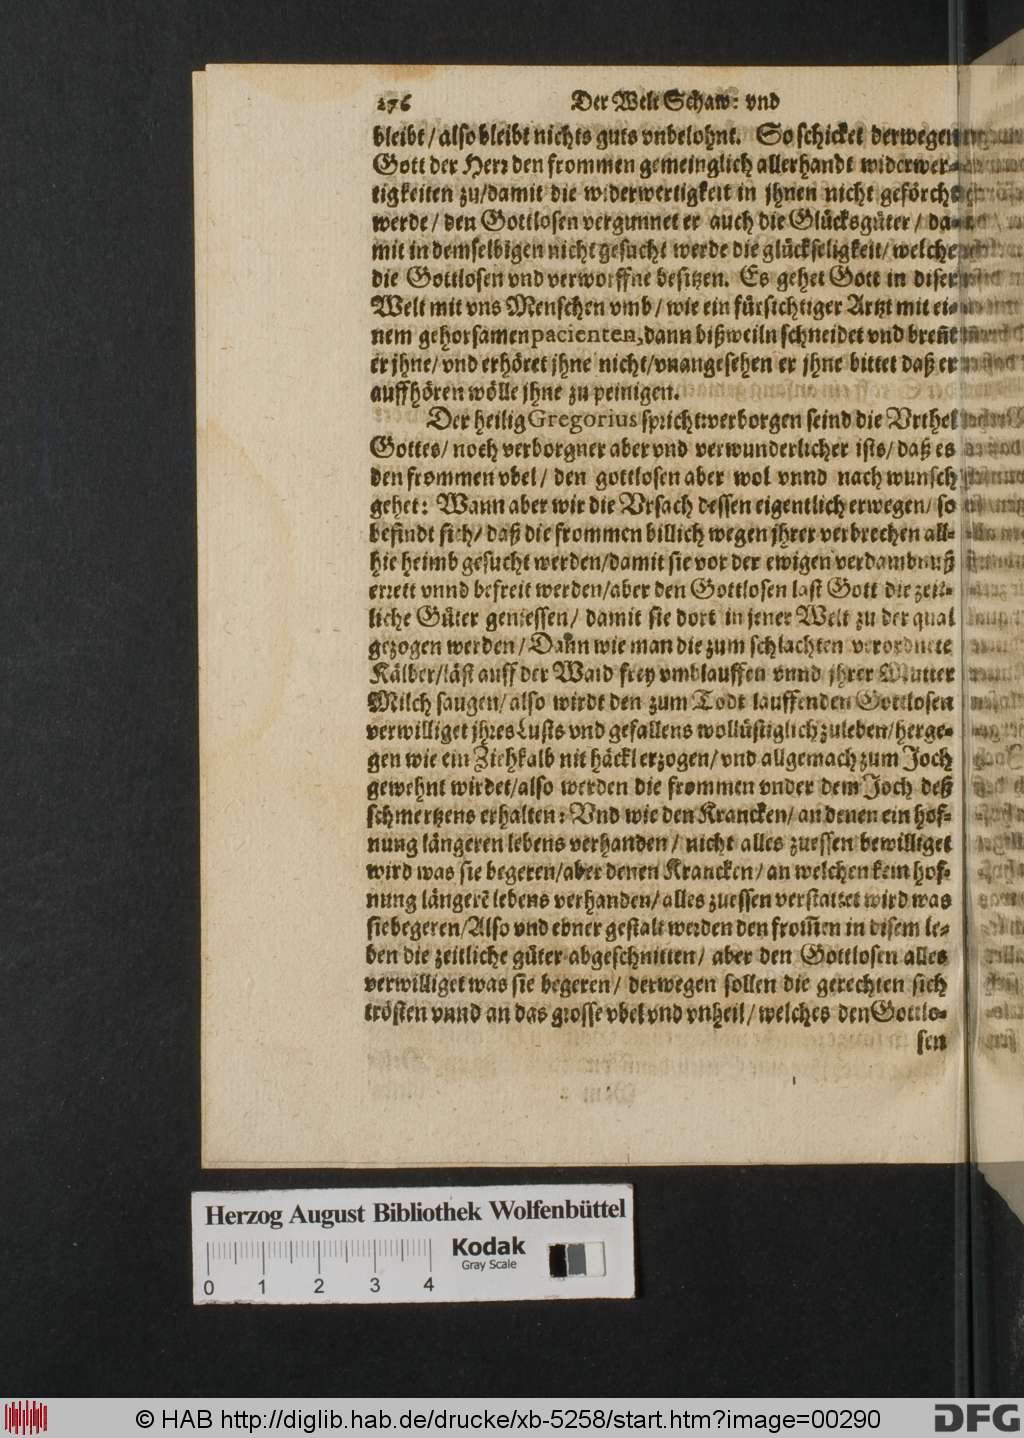 276 Der Welt Schaw: vnd
bleibt/also bleibt nichts guts vnbelohnt. So schicket derwegen
Gott der Herr den frommen gemeinglich allerhandt widerwer-
tigkeiten zu/damit die widerwertigkeit in jhnen nicht geförcht
werde/ den Gottlosen vergunnet er auch die Glücksgüter/ da-
mit in demselbigen nicht gesucht werde die glückseligkeit/welche
die Gottlosen vnd verworffne besitzen. Es gehet Gott in diser
Welt mit vns Menschen vmb/ wie ein fürsichtiger Artzt mit ei-
nem gehorsamen pacienten, dann bißweiln schneidet vnd breñt
er jhne/ vnd erhöret jhne nicht/vnangesehen er jhne bittet daß er
auffhören wölle jhne zu peinigen.
Der heilig Gregorius spricht: verborgen seind die Vrthel
Gottes/ noch verborgner aber vnd verwunderlicher ists/ daß es
den frommen vbel/ den gottlosen aber wol vnnd nach wunsch
gehet: Wann aber wir die Vrsach dessen eigentlich erwegen/ so
befindt sich/ daß die frommen billich wegen jhrer verbrechen all-
hie heimb gesucht werden/damit sie vor der ewigen verdambnuß
errett vnnd befreit werden/aber den Gottlosen last Gott die zeit-
liche Güter geniessen/ damit sie dort in jener Welt zu der qual
gezogen werden/ Dann wie man die zum schlachten verordnete
Kälber/läst auff der Waid frey vmblauffen vnnd jhrer Mutter
Milch saugen/ also wirdt den zum Todt lauffenden Gottlosen
verwilliget jhres Lusts vnd gefallens wollüstiglich zuleben/herge-
gen wie ein Ziehkalb nit häckl erzogen/ vnd allgemach zum Joch
gewehnt wirdet/also werden die frommen vnder dem Joch deß
schmertzens erhalten: Vnd wie den Krancken/ an denen ein hof-
nung längeren lebens verhanden/ nicht alles zuessen bewilliget
wird was sie begeren/aber denen Krancken/ an welchen kein hof-
nung längerẽ lebens verhanden/ alles zuessen verstattet wird was
sie begeren/Also vnd ebner gestalt werden den from̃en in disem le-
ben die zeitliche güter abgeschnitten/ aber den Gottlosen alles
verwilliget was sie begeren/ derwegen sollen die gerechten sich
trösten vnnd an das grosse vbel vnd vnheil/ welches den Gottlo-
sen
Herzog August Bibliothek Wolfenbüttel
Kodak
Gray Scale
0 1 2 3 4
© HAB http://diglib.hab.de/drucke/xb-5258/start.htm?image=00290
DFG